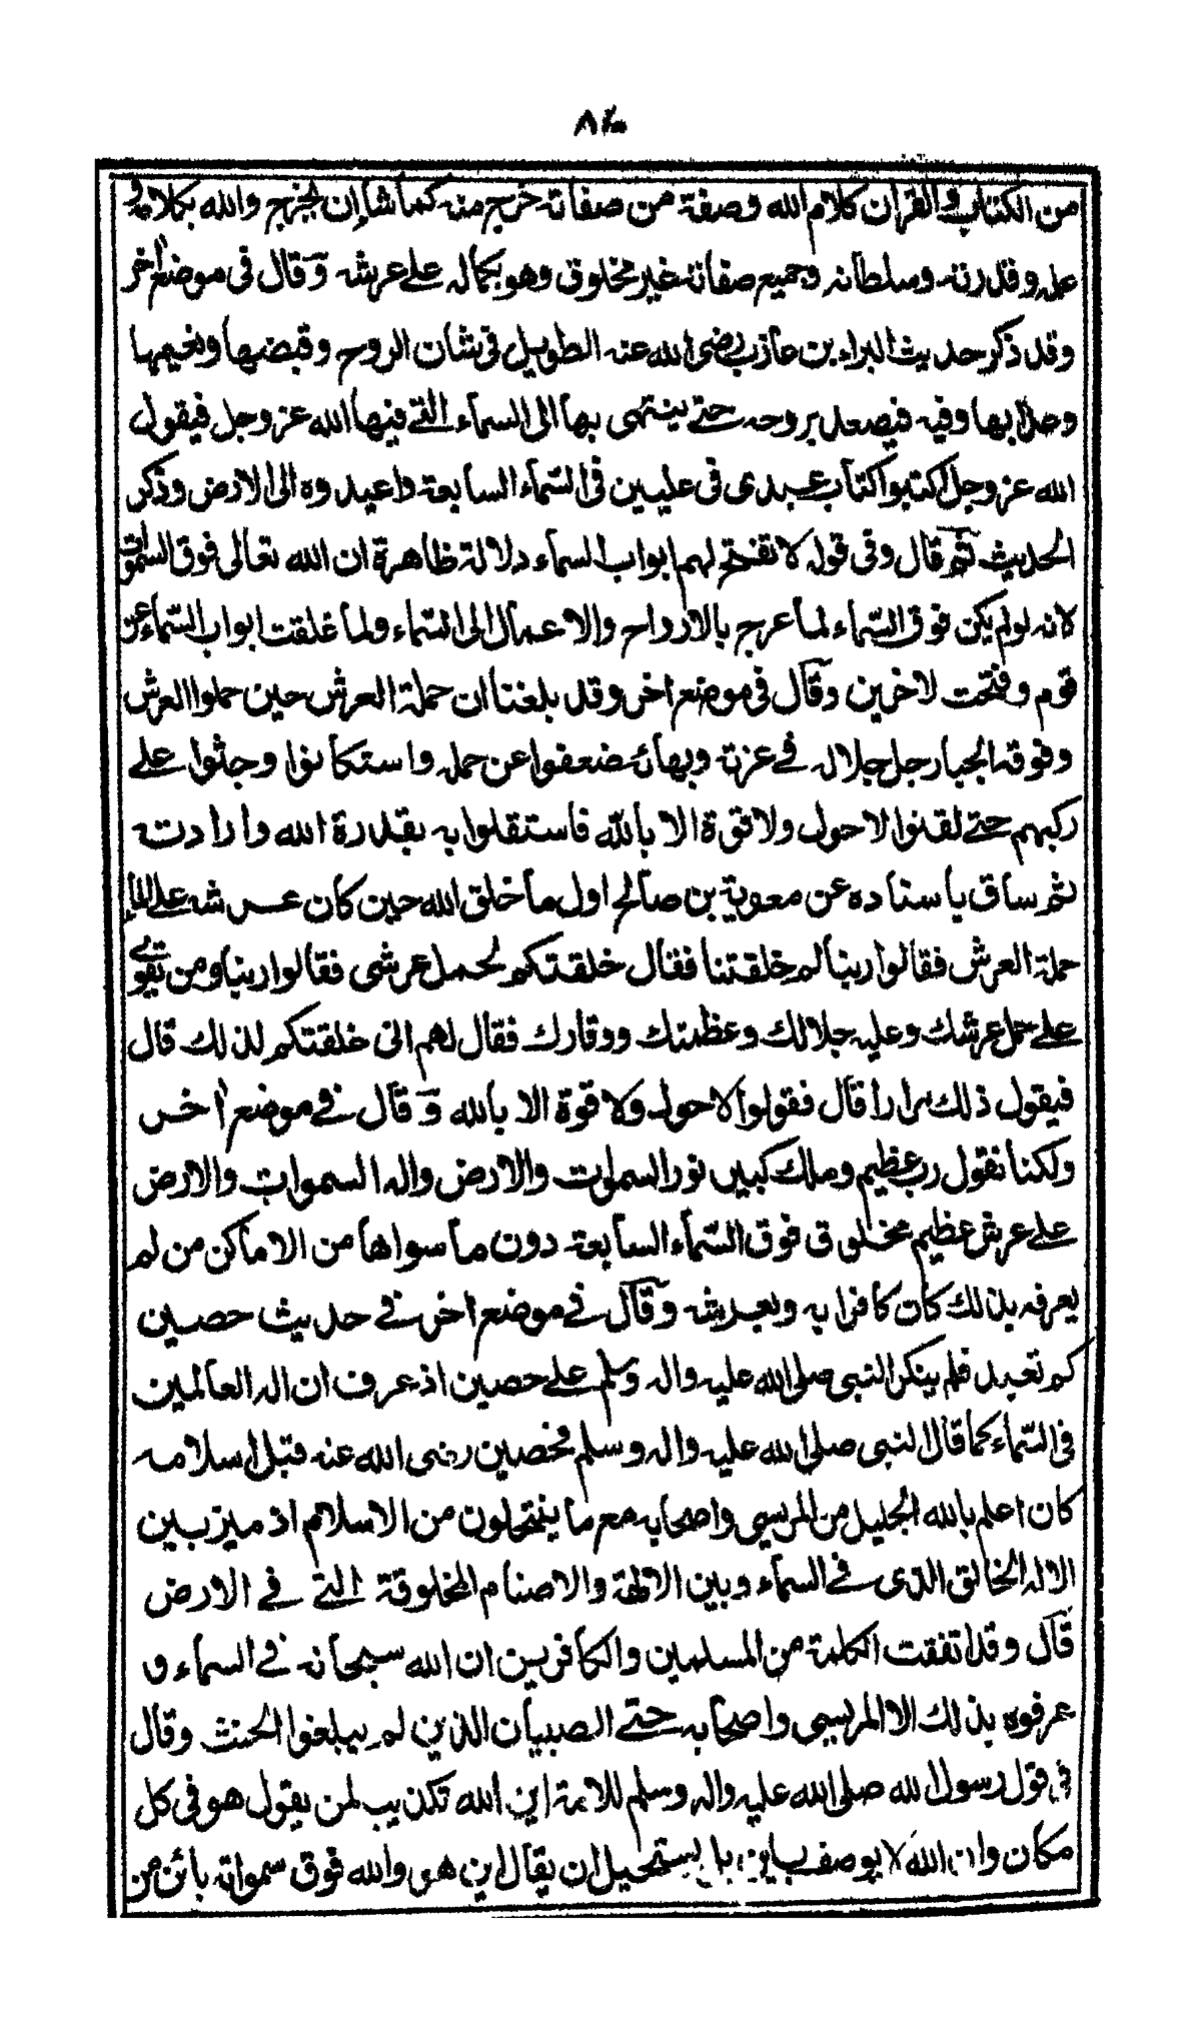 ٨٤
من الكتاب والقرآن كلام الله وصفة من صفاته خرج منه كما شاء ان يخرج والله بكلامه و
علمه وقدرته وسلطانه وجميع صفاته غير مخلوق وهو بكماله على عرشه وقال في موضع اخر
وقد ذكر حديث البراء بن عازب رضى الله عنه الطويل في شان الروح وقبضها ونعيمها
وعذابها وفيه فيصعد بروحه حتى ينتهى بها الى السماء التي فيها الله عز وجل فيقول
الله عز وجل اكتبوا كتاب عبدى في عليين في السماء السابعة واعيدوه الى الارض وذكر
الحديث ثم قال وفى قوله لا تفتح لهم ابواب السماء دلالة ظاهرة ان الله تعالى فوق السموات
لانه لو لم يكن فوق السماء لما عرج بالارواح والاعمال الى السماء ولما غلقت ابواب السماء عن
قوم وفتحت لاخرين وقال في موضع اخر وقد بلغنا ان حملة العرش حين حملوا العرش
وفوقه الجبار جل جلاله في عزته وبهائه ضعفوا عن حمله واستكانوا وجثوا على
ركبهم حتى لقنوا لا حول ولا قوة الا بالله فاستقلوا به بقدرة الله وارادته
ثم ساق باسناده عن معوية بن صالح اول ما خلق الله حين كان عرشه على الماء
حملة العرش فقالوا ربنا لم خلقتنا فقال خلقتكم لحمل عرشى فقالوا ربنا ومن يقوى
على حمل عرشك وعليه جلالك وعظمتك ووقارك فقال لهم انى خلقتكم لذلك قال
فيقول ذلك مرارا قال فقولوا لا حول ولا قوة الا بالله وقال في موضع اخر
ولكنا نقول رب عظيم وملك كبير نور السموات والارض واله السموات والارض
على عرش عظيم مخلوق فوق السماء السابعة دون ما سواها من الاماكن من لم
يعرفه بذلك كان كافرا به وبعرشه وقال في موضع اخر في حديث حصين
كم تعبد فلم ينكر النبى صلى الله عليه واله وسلم على حصين اذ عرف ان اله العالمين
في السماء كما قال النبى صلى الله عليه واله وسلم فحصين رضى الله عنه قبل اسلامه
كان اعلم بالله الجليل من المريسى واصحابه مع ما ينتحلون من الاسلام اذ ميز بين
الاله الخالق الذى في السماء وبين الالهة والاصنام المخلوقة التي في الارض
قال وقد اتفقت الكلمة من المسلمين والكافرين ان الله سبحانه في السماء و
عرفوه بذلك الا المريسى واصحابه حتى الصبيان الذين لم يبلغوا الحنث وقال
في قول رسول الله صلى الله عليه واله وسلم للامة اين الله تكذيب لمن يقول هو فى كل
مكان وان الله لا يوصف باين بل يستحيل ان يقال اين هو والله فوق سمواته بائن من